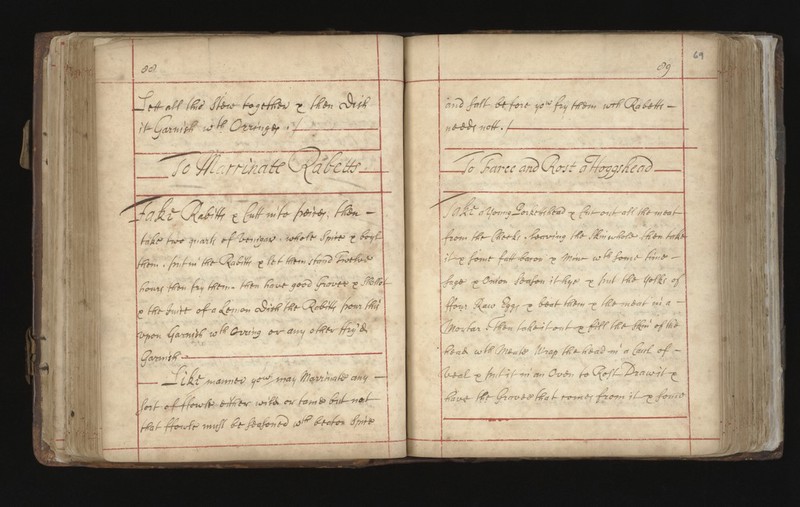 88
Lett all this Stew together & then Dish
it Garnish wth Orringes
To Marrinate Rabetts
Take Rabitts & Cutt into peices, then
take two quarts of Venigar, whole Spice & boyl
them, putt in the Rabitts & let them stand twelve
hours then fry them, then have good Gravey &
& the Juice of a Lemon Dish the Rabitts pour this
upon Garnish wth Orring or any other fry'd
Garnish
Like manner yow may Marrinate any
sort of ffowle either wild or tame but not
that ffowle must be Seasoned wth beaten Spice
69
89
and Salt before yow fry them wch Rabetts
needs nott.
To Farce and Rost a Hoggshead
Take a Young Porkershead & Cut out all the meat
from the Cheeks, Leaving the Skin whole then take
it & some fatt bacon & Mince wth some time
sage & Onion Season it hye & put the Yolks of
ffour Raw Eggs & beat them & the meat in a
Mortar. Then take it out & fill the Skin of the
head wth Meate Wrap the head in a Caul of
Veal & put it in an Oven to Rost Draw it &
have the Gravee that comes from it & some